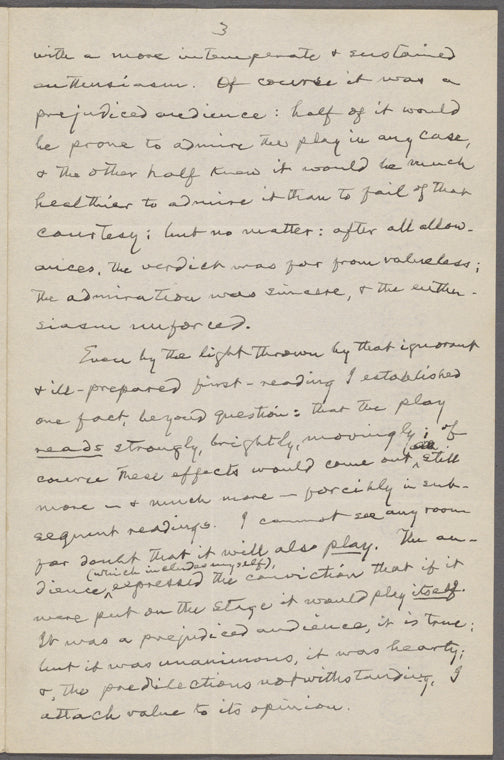 3
with a more intemperate & sustained
enthusiasm. Of course it was a
prejudiced audience: half of it would
be prone to admire the play in any case,
& the other half knew it would be much
healthier to admire it than to fail of that
courtesy; but no matter: after all allow-
ances, the verdict was far from valueless;
the admiration was sincere, & the enthu-
siasm unforced.
Even by the light thrown by that ignorant
& ill-prepared first-reading I established
one fact, beyond question: that the play
reads strongly, brightly, movingly; of
course these effects would come out, still
more — & much more — forcibly in sub-
sequent readings. I cannot see any room
for doubt that it will also play. The au-
(which includes myself),
dience, expressed the conviction that if it
were put on the stage it would play itself.
It was a prejudiced audience, it is true;
but it was unanimous, it was hearty;
&, the predilections notwithstanding, I
attach value to its opinion.